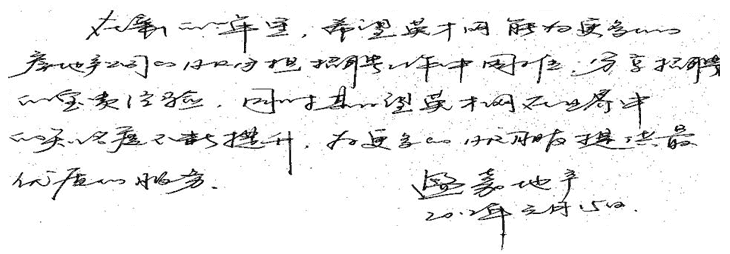 在新的一年里，希望英才网能为更多的
房地产公司的HR分担招聘工作中困难，分享招聘
的宝贵经验，同时其望英才网在世界中
的知名度不断提升，为更多的HR朋友提供最
优质的服务。
嘉地产
2012年元月15日.